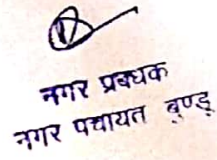 नगर प्रबधक
नगर पचायत बुण्डू